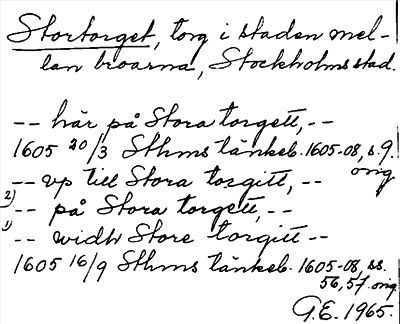 Stortorget, torg i staden mel-
lan broarna, Stockholms stad.
-- här på Stora torgett, --
1605 20/3 Sthms tänkeb. 1605-08, s. 9.
orig
-- vp till Stora torgitt, --
2) -- på Stora torgett, --
1) -- widh Store torgitt --
1605 16/9 Sthms tänkeb. 1605-08, ss.
56, 57. orig
G.E. 1965.